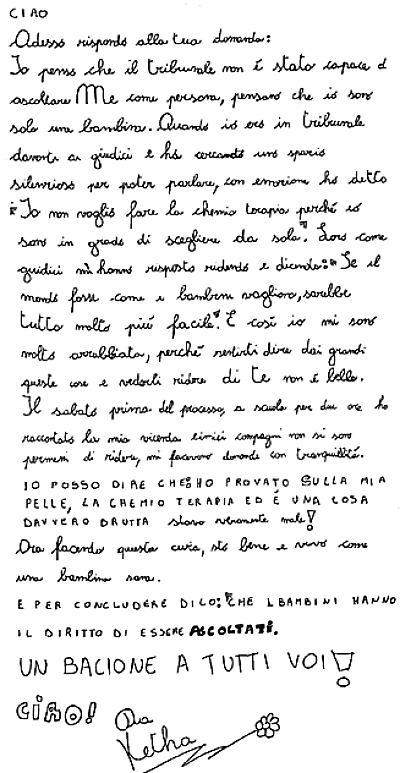 CIAO
Adesso rispondo alla tua domanda:
Io penso che il tribunale non é stato capace d
ascoltare Me come persona, pensano che io sono
solo una bambina. Quando io ero in tribunale
davanti ai giudici e ho cercando uno spazio
silenzioso per poter parlare, con emozione ho detto
"Io non voglio fare la chemio terapia perché io
sono in grado di scegliere da sola". Loro come
giudici mi hanno risposto ridendo e dicendo: "Se il
mondo fosse come i bambini vogliono, sarebbe
tutto molto piú facile". E cosí io mi sono
molto arrabbiata, perché sentirti dire dai grandi
queste cose e vederli ridere di te non é bello.
Il sabato prima del processo, a scuola per due ore ho
raccontato la mia vicenda e i miei compagni non si sono
permessi di ridere, mi facevano domande con tranquillitá.
IO POSSO DIRE CHE HO PROVATO SULLA MIA
PELLE, LA CHEMIO TERAPIA ED É UNA COSA
DAVVERO BRUTTA stavo veramente male!
Ora facendo questa cura, sto bene e vivo come
una bambina sana.
E PER CONCLUDERE DICO: "CHE I BAMBINI HANNO
IL DIRITTO DI ESSERE ASCOLTATI.
UN BACIONE A TUTTI VOI!
CIAO!
Da